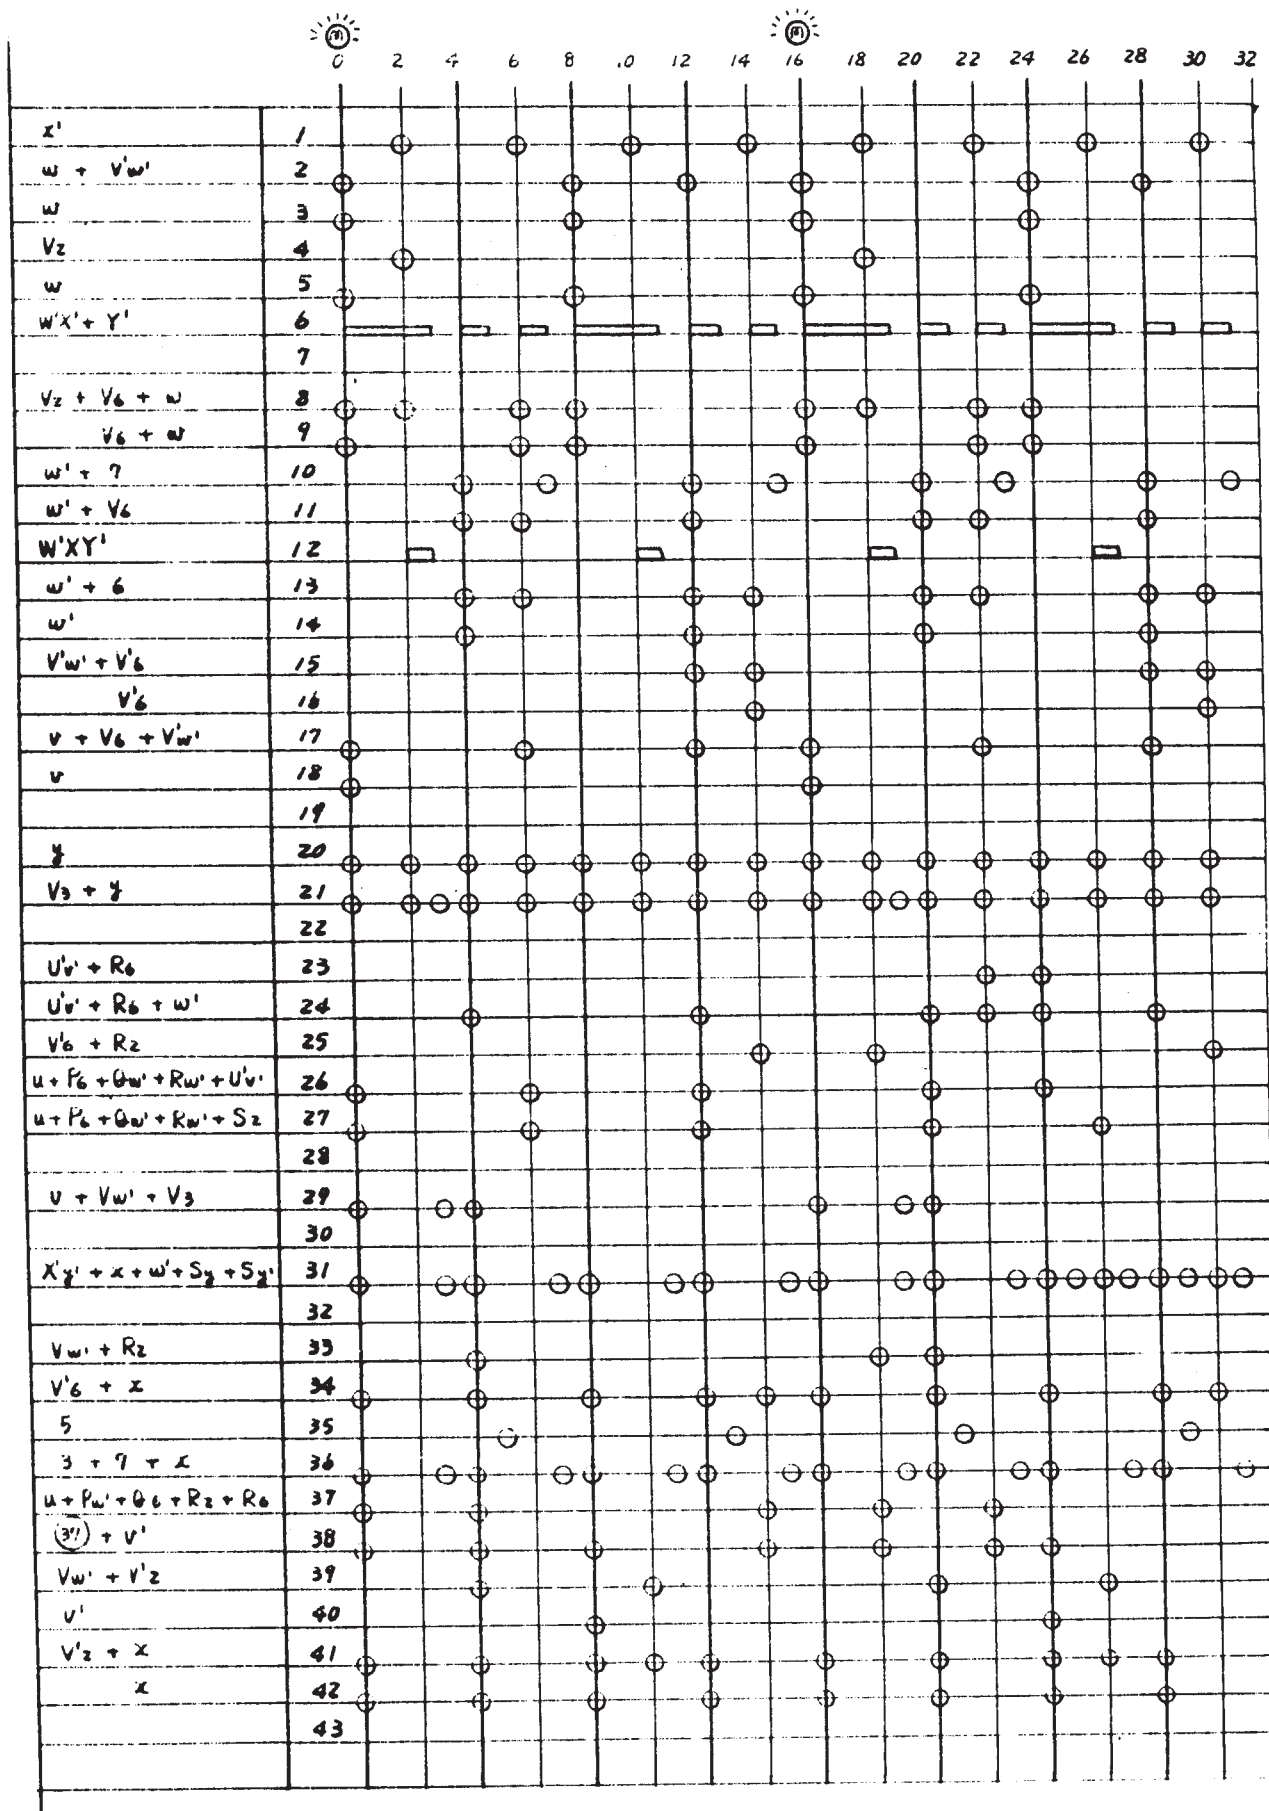 m m
0 2 4 6 8 10 12 14 16 18 20 22 24 26 28 30 32
x' 1
w + V'w' 2
w 3
V2 4
w 5
W'X' + Y' 6
7
V2 + V6 + w 8
V6 + w 9
w' + 7 10
w' + V6 11
W'XY' 12
w' + 6 13
w' 14
V'w' + V'6 15
V'6 16
v + V6 + V'w' 17
v 18
19
y 20
V3 + y 21
22
U'v' + R6 23
U'v' + R6 + w' 24
V'6 + R2 25
u + P6 + Qw' + Rw' + U'v' 26
u + P6 + Qw' + Rw' + S2 27
28
u + Vw' + V3 29
30
X'y' + x + w' + Sy + Sy' 31
32
Vw' + R2 33
V'6 + x 34
5 35
3 + 7 + x 36
u + Pw' + Q6 + R2 + R6 37
(37) + v' 38
Vw' + V'2 39
v' 40
V'2 + x 41
x 42
43